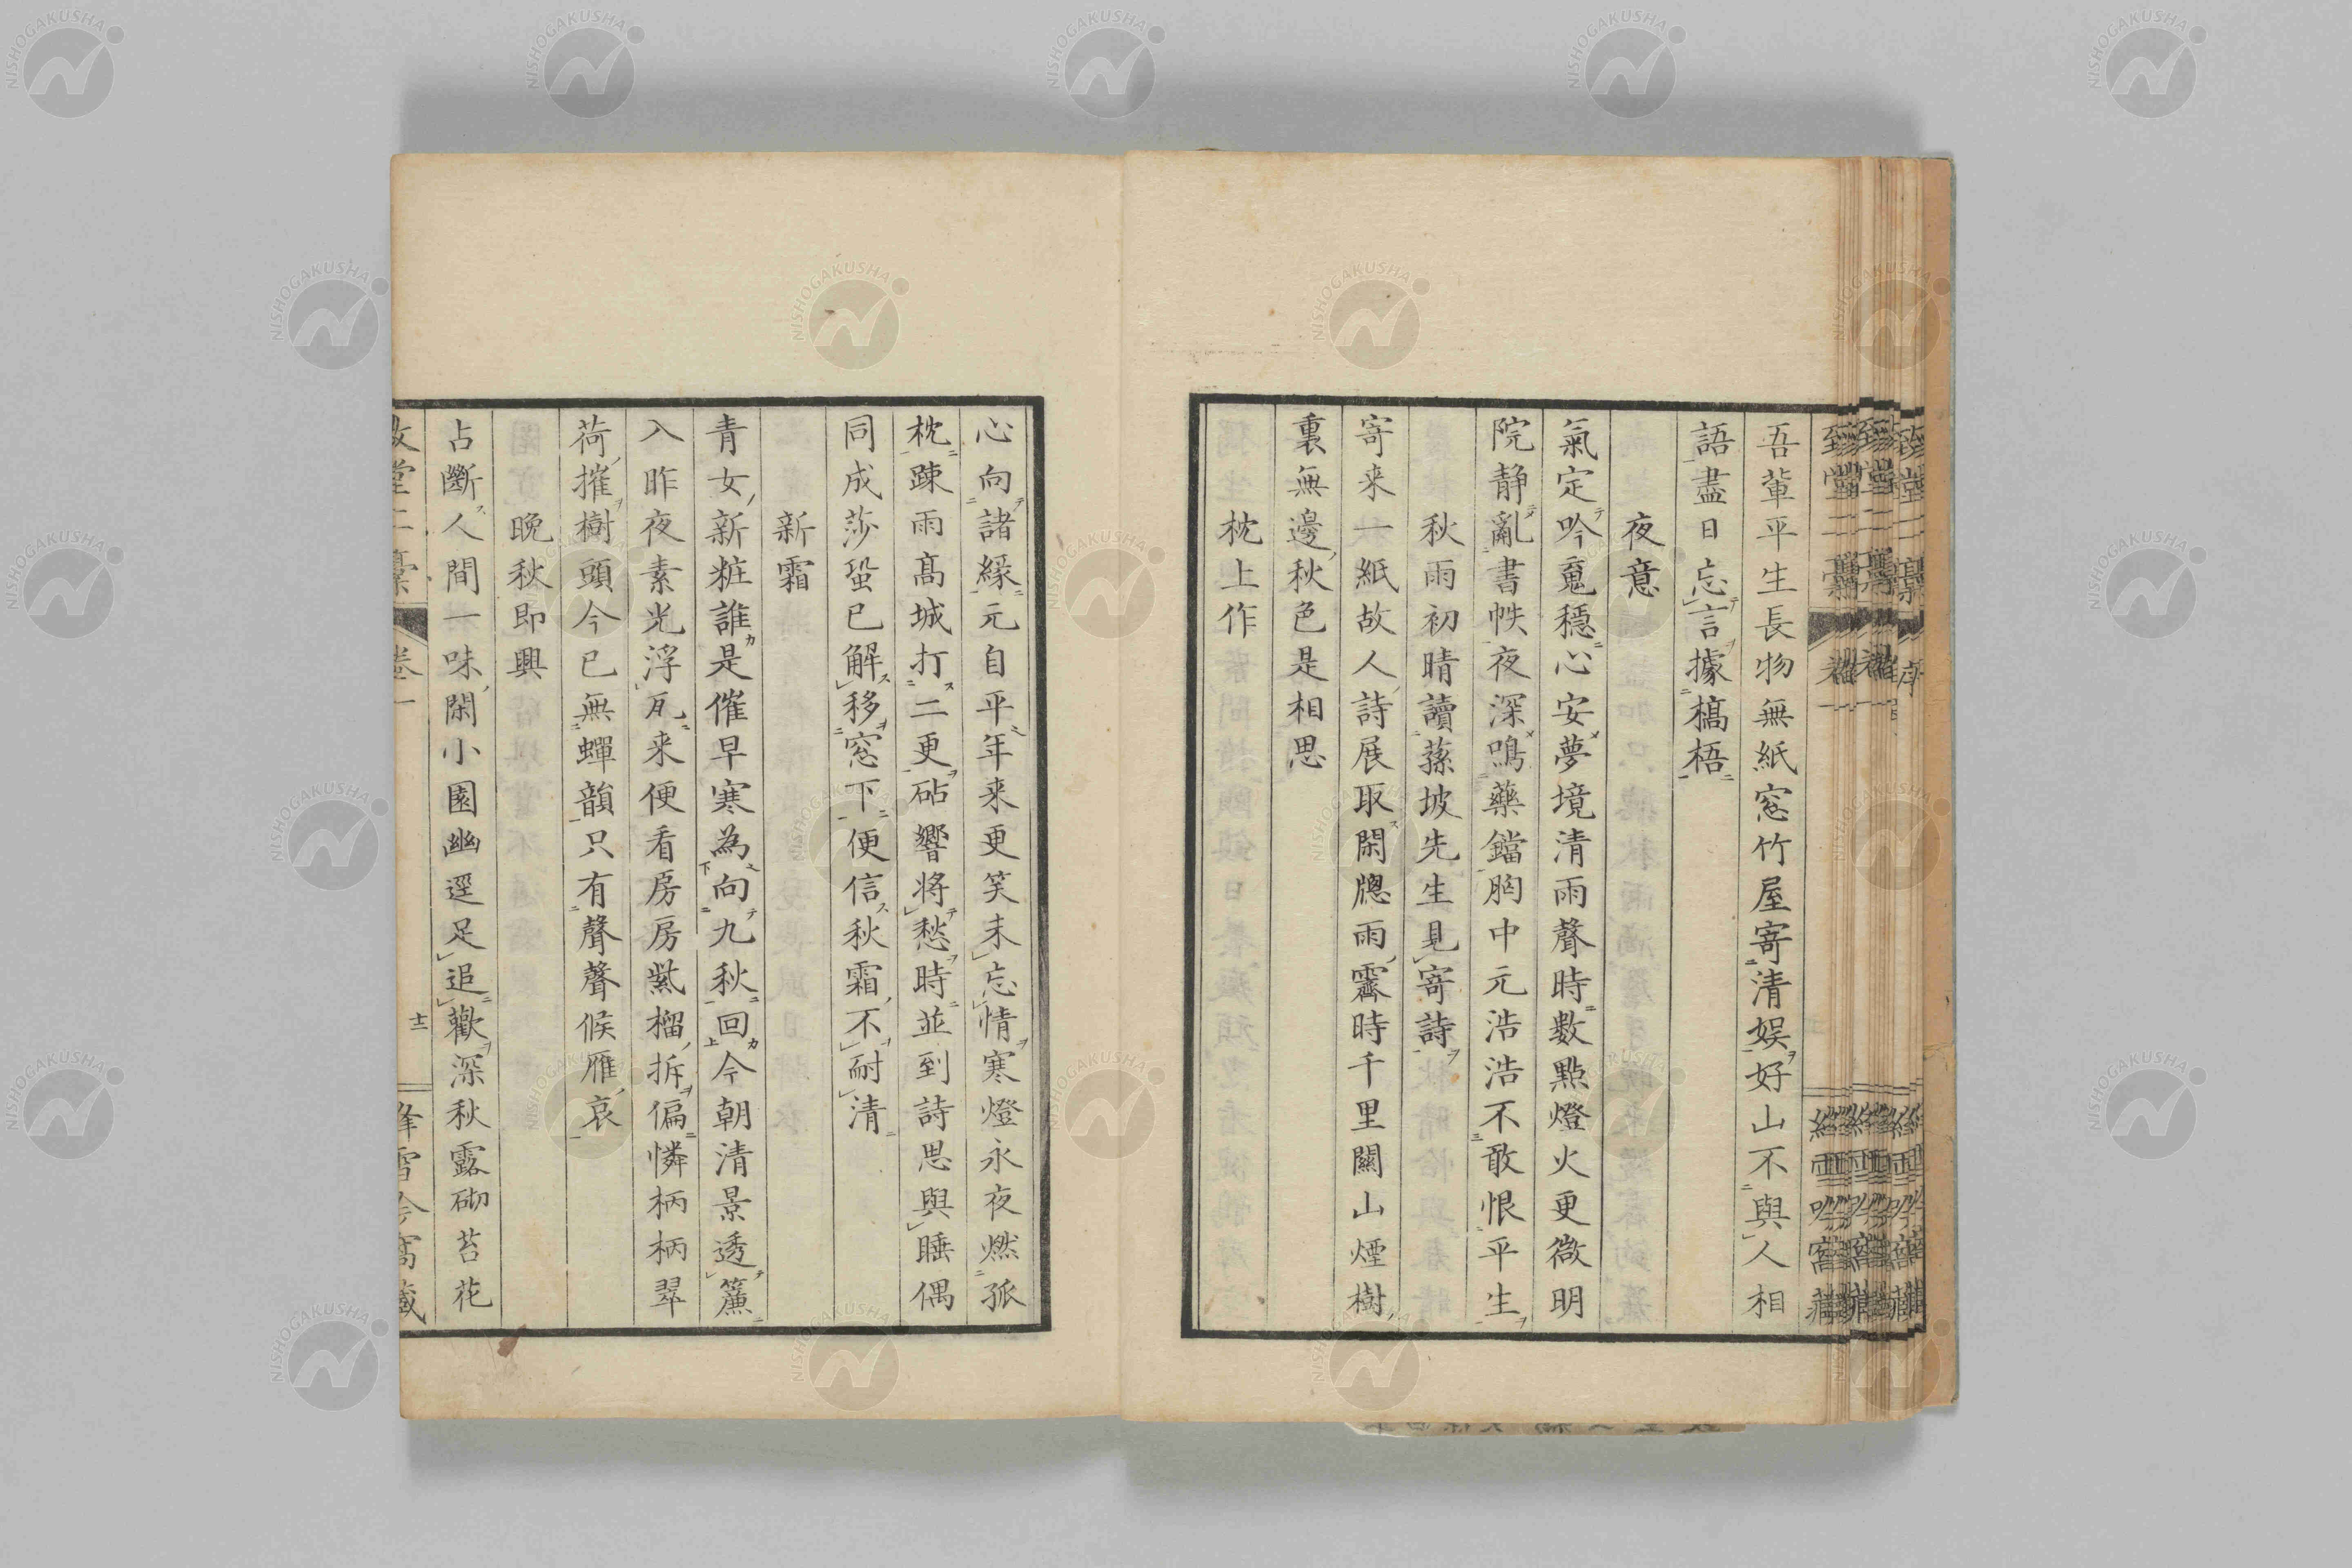 吾輩平生長物無紙窓竹屋寄清娯好山不與人相
語盡日忘言據槁梧
夜意
氣定吟䰟穩心安夢境清雨聲時數點燈火更微明
院静亂書帙夜深鳴藥鐺胸中元浩浩不敢恨平生
秋雨初晴讀蓀坡先生見寄詩
寄来一紙故人詩展取閑牕雨霽時千里關山煙樹
裏無邊秋色是相思
枕上作
心向諸緣元自平年来更笑未忘情寒燈永夜燃孤
枕踈雨髙城打二更砧響將愁時並到詩思與睡偶
同成莎蛩已解移窓下便信秋霜不耐清
新霜
青女新粧誰是催早寒為向九秋回今朝清景透簾
入昨夜素光浮瓦来便看房房紫榴拆偏憐柄柄翠
荷摧樹頭今已無蟬韻只有聲聲候雁哀
晩秋即興
占斷人間一味閑小園幽逕足追歡深秋露砌苔花
卷一
十三
NISHOGAKUSHA